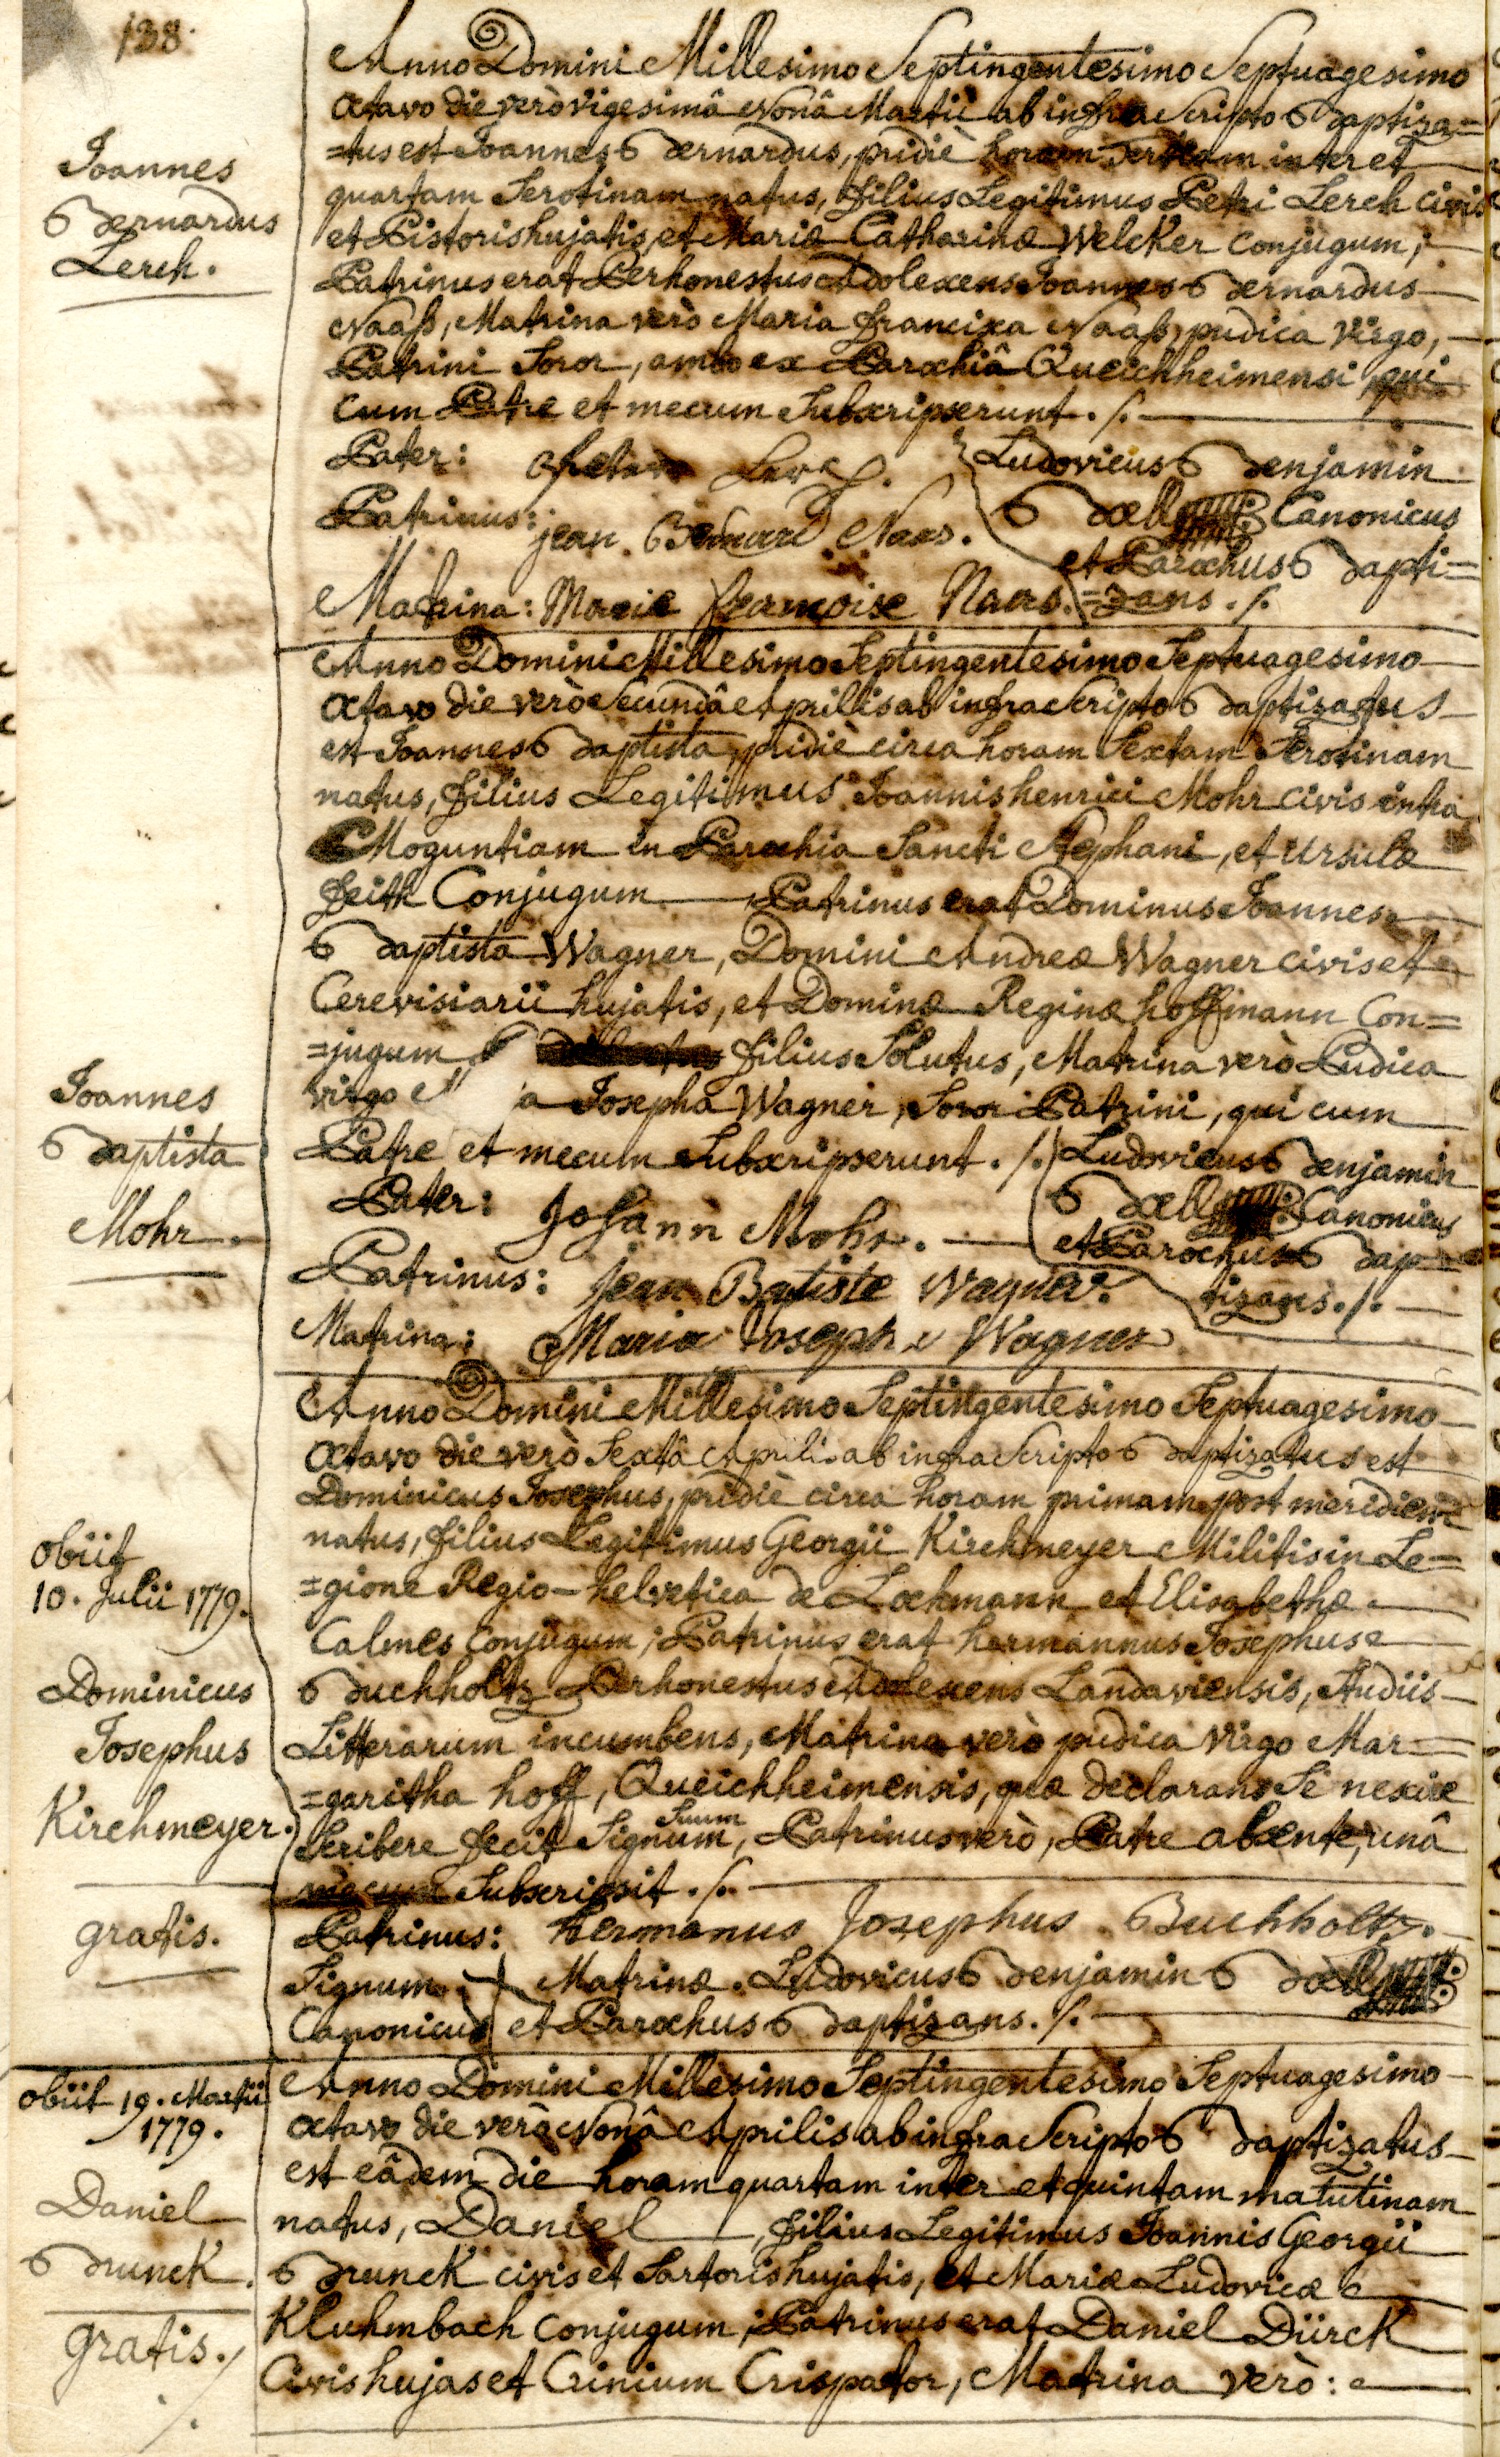 138.
Anno Domini Millesimo Septingentesimo Septuagesimo
Octavo die verò vigesimâ Nonâ Martii ab infra Scripto Baptiza=
=tus est Joannes Bernardus, pridiè horam Tertiam inter et
quartam Serotinam natus, filius Legitimus Petri Lerch civis
et Pistoris hujatis, et Mariæ Catharinæ Welcker conjugum;
Patrinus erat Perhonestus Adolescens Joannes Bernardus
Naaß, Matrina verò Maria Francisca Naaß, pudica Virgo,
Patrini Soror, ambo ex Parochiâ Queichheimensi, qui
cum Patre et mecum Subscripserunt ./.
Joannes
Bernardus
Lerch.
Pater: Peter Lerch.
Patrinus: jean Bernard Naas.
Matrina: Marie francoise Naas.
Ludovicus Benjamin
Boell Canonicus
et Parochus Bapti=
=zans ./.
Anno Domini Millesimo Septingentesimo Septuagesimo
Octavo die verò Secundâ Aprilis ab infra Scripto Baptizatus
est Joannes Baptista, pridiè circa horam Sextam Serotinam
natus, filius Legitimus Joannis henrici Mohr civis intra
Moguntiam in Parochia Sancti Stephani, et Ursulæ
feith Conjugum, Patrinus erat Dominus Joannes
Baptista Wagner, Domini Andreæ Wagner civis et
Cerevisiarii hujatis, et Dominæ Reginæ hoffmann Con=
=jugum filius Solutus, Matrina verò Pudica
virgo M a Josepha Wagner, Soror Patrini, qui cum
Patre et mecum Subscripserunt ./.
Joannes
Baptista
Mohr.
Pater: Johann Mohr.
Patrinus: Jean Batiste Wagner.
Matrina: Maria Joseph Wagner
Ludovicus Benjamin
Boell Canonicus
et Parochus Bap=
tizans ./.
Anno Domini Millesimo Septingentesimo Septuagesimo
Octavo die verò Sextâ Aprilis ab infra Scripto Baptizatus est
Dominicus Josephus, pridiè circa horam primam post meridiem
natus, filius Legitimus Georgii Kirchmeyer Militis in Le=
=gione Regio-helvetica de Lochmann et Elisabethæ
Calmes conjugum; Patrinus erat hermannus Josephus
Buchholtz Perhonestus Adolescens Landaviensis, Studiis
Litterarum incumbens, Matrina verò pudica Virgo Mar=
=garitha hoff, Queichheimensis, quæ declarans Se nescire
Scribere fecit Signum Suum, Patrinus verò, Patre absente, unâ
mecum Subscripsit ./.
obiit
10. Julii 1779.
Dominicus
Josephus
Kirchmeyer.
gratis.
Patrinus: Hermanus Josephus Buchholtz.
Signum + Matrinæ. Ludovicus Benjamin Boell
Canonicus et Parochus Baptizans ./.
Anno Domini Millesimo Septingentesimo Septuagesimo
octavo die verò Nonâ Aprilis ab infra Scripto Baptizatus
est eâdem die horam quartam inter et quintam matutinam
natus, Daniel, filius Legitimus Joannis Georgii
Brunck civis et Sartoris hujatis, et Mariæ Ludovicæ
Kluhmbach conjugum; Patrinus erat Daniel Dürck
Civis hujas et Crinium Crispator, Matrina verò:
obiit 19. Martii
1779.
Daniel
Brunck.
gratis.